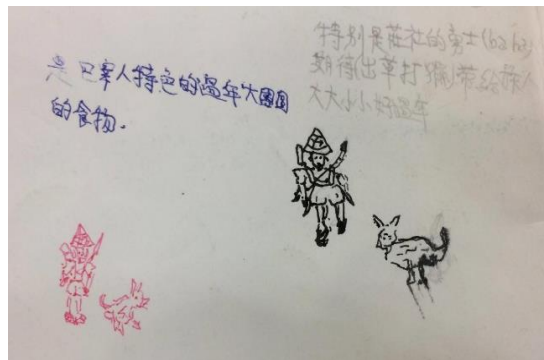 是巴宰人特色的過年大團圓
的食物.
特別是莊社的勇士(
期待出草打獵帶給族人
大大小小好過年